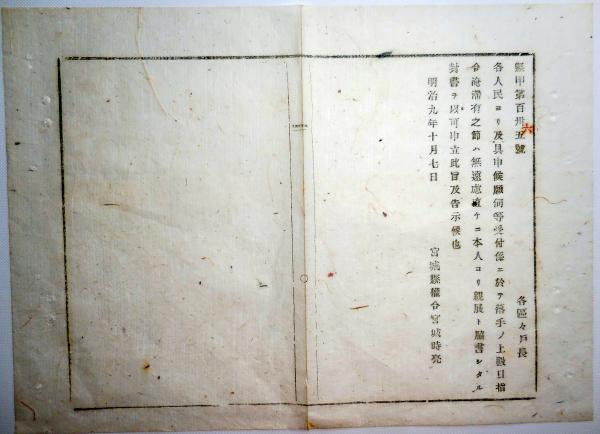 縣甲第百卅五號
六
各區々戸長
各人民ヨリ及具申候願伺等受付係ニ於テ落手ノ上数日指
令淹滞有之節ハ無遠慮直ケニ本人ヨリ親展ト脇書シタル
封書ヲ以可申立此旨及告示候也
明治九年十月七日
宮城縣權令宮城時亮